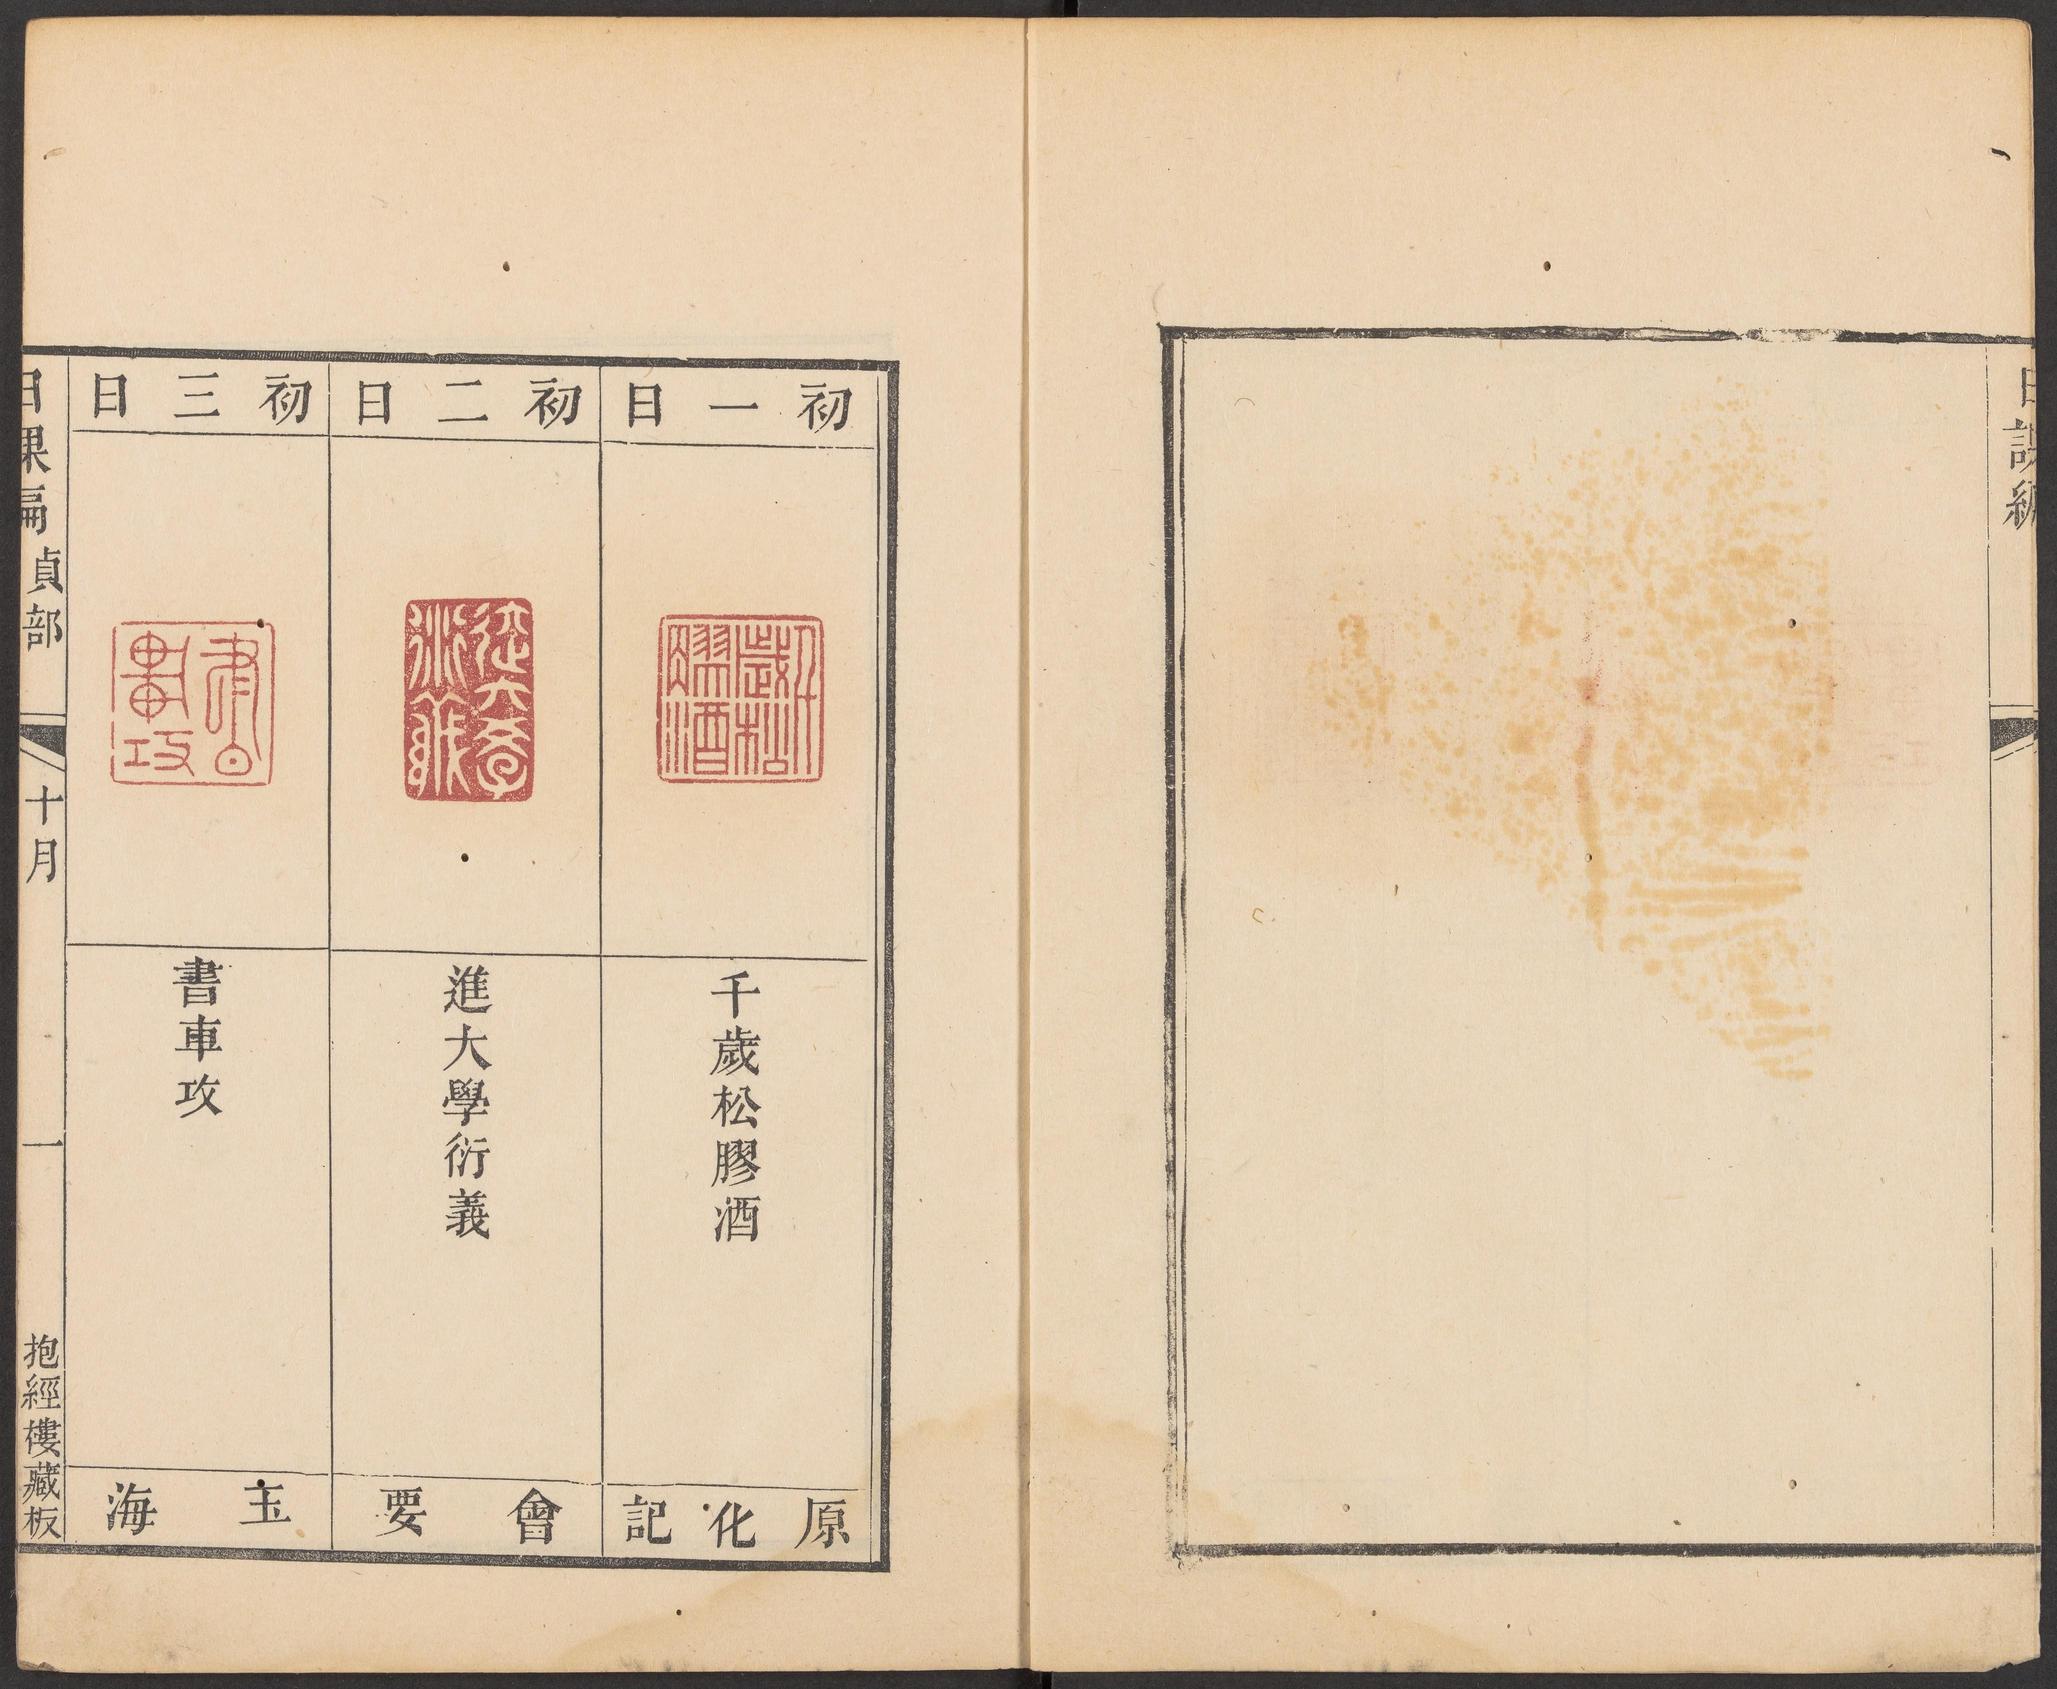 日課編
初一日
千歲松膠酒
原化記
初二日
進大學衍義
會要
初三日
書車攻
玉海
日課編 貞部
十月
一
抱經樓藏板